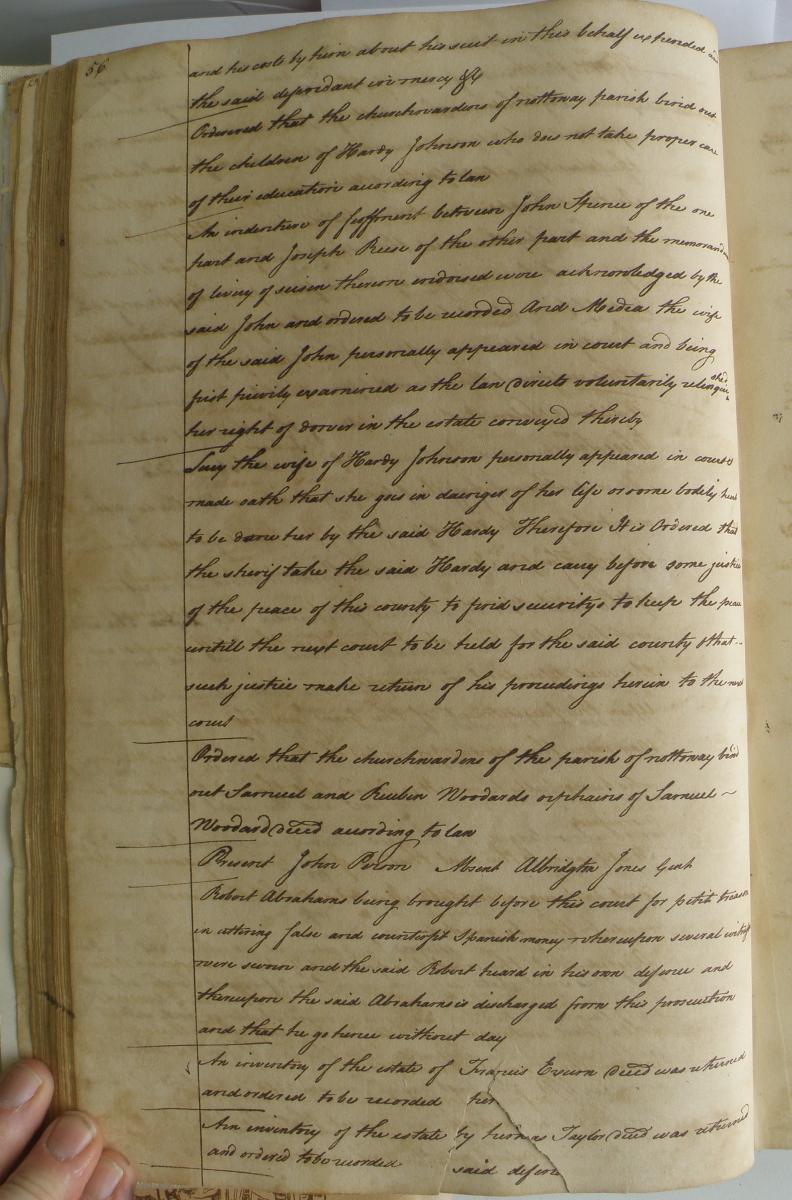 56
and his costs by him about his suit in this behalf expended and
the said defendant in mercy &c
Ordered that the churchwardens of nottoway parish bind out
the children of Hardy Johnson who does not take proper care
of their education according to law
An indenture of feoffment between John Spence of the one
part and Joseph Reese of the other part and the memorandum
of livery of seisen thereon endorsed were acknowledged by the
said John and ordered to be recorded And Medea the wife
of the said John personally appeared in court and being
first privily examined as the law directs voluntarily relenquished
her right of dower in the estate conveyed thereby
Lucy the wife of Hardy Johnson personally appeared in court &
made oath that she goes in dainger of her life or some bodily hurt
to be done her by the said Hardy Therefore It is Ordered that
the sherif take the said Hardy and carry before some justice
of the peace of this county to find securitys to keep the peace
untill the next court to be held for the said county & that
such justice make return of his proceedings herein to the next
court
Ordered that the churchwardens of the parish of nottoway bind
out Samuel and Reubin Woodards orphains of Samuel ~
Woodard deced acording to law
Present John Person Absent Albridgton Jones Gent
Robert Abrahams being brought before this court for petit treason
in uttering false and counterfit Spanish money whereupon several witness
were sworn and the said Robert heard in his own defence and
thereupon the said Abrahams is discharged from this prosecution
and that he go hence without day
An inventory of the estate of Francis deced was returned
and ordered to be recorded her
An inventory of the estate Taylor deced was returned
and ordered to be recorded said defen